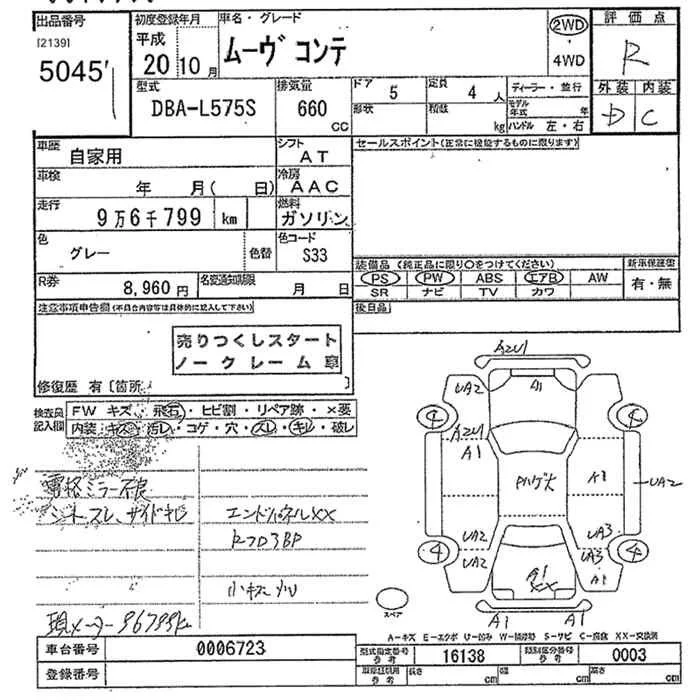 出品番号 初度登録年月 車名・グレード 評価点
[2139] 平成 ムーヴ コンテ 2WD R
5045 20 10月 4WD 外装 内装
型式 排気量 ドア 定員 ディーラー・並行 D C
DBA-L575S 660 5 4人 モデル年式 年
CC 形状 積数 kg ハンドル 左・右
車歴 シフト セールスポイント(正常に機能するものに限ります)
自家用 AT
車検 冷房
年 月( 日) AAC
走行 燃料
9万6千799 km ガソリン
色 色コード
グレー 色替 S33 装備品 (純正品に限り○をつけてください) 新車保証書
R券 名変通知期限 PS PW ABS エアB AW 有・無
8,960円 月 日 SR ナビ TV カワ
注意事項申告欄(不具合内容等は具体的に記入して下さい) 後日品
売りつくしスタート
ノークレーム 車
修復歴 有〔箇所 〕
検査員 FW キズ・飛石・ヒビ割・リペア跡・×要
記入欄 内装・キズ・汚レ・コゲ・穴・スレ・キレ・破レ
AZU1
UA2 A1
4 4
AZU1
A1 Pハゲ大 UA2
UA2 UA3
4 UA2 UA3 4
A1 A1
XX
A1 A1
電格ミラー不良
シートスレ、サイドキレ エンドパネルXX
小キズ
現メーター96799km スペア
A-キズ E-エクボ U-凹み W-補修跡 S-サビ C-腐食 XX-交換済
車台番号 0006723 型式指定番号 参考 16138 類別区分番号 参考 0003
登録番号 参考 長さ cm 幅 cm 高さ cm